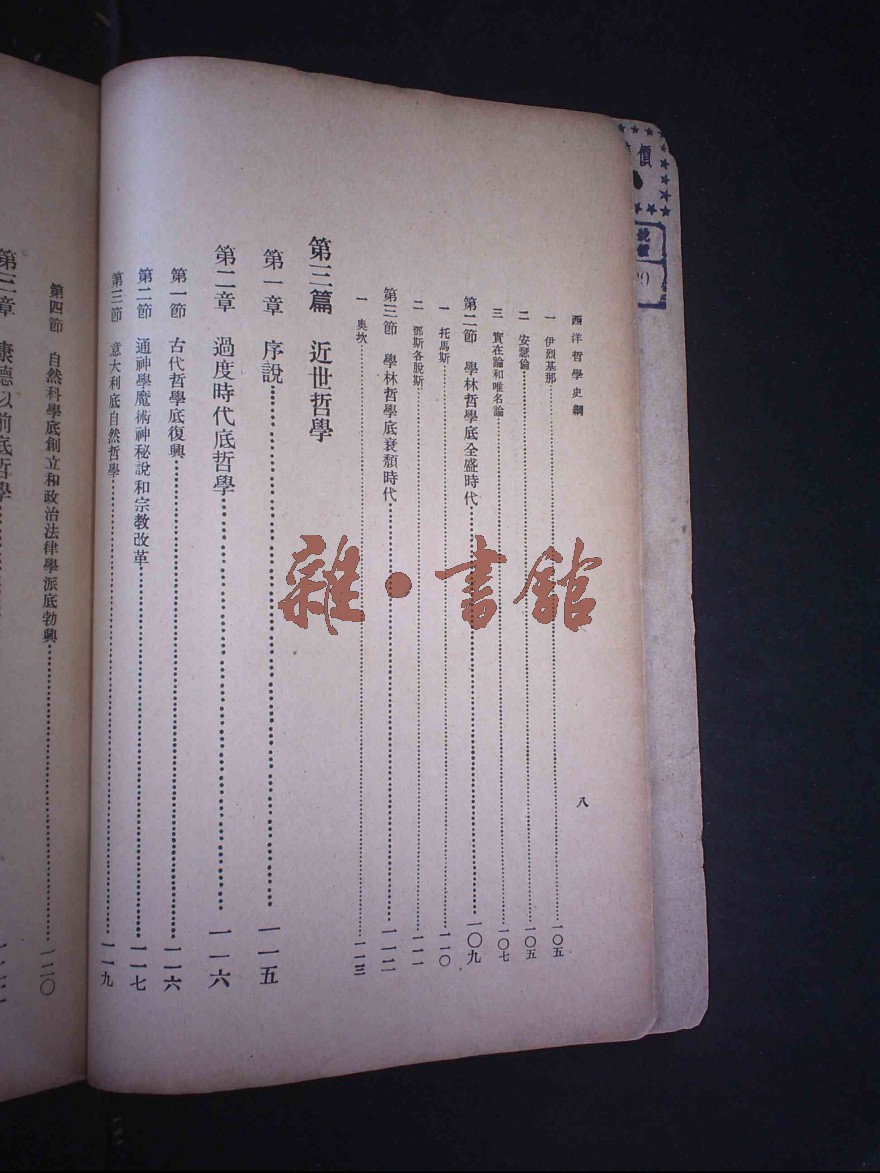 西洋哲學史綱
八
一 伊烈基那 一〇五
二 安瑟倫 一〇五
三 實在論和唯名論 一〇七
第二節 學林哲學底全盛時代 一〇九
一 托馬斯 一一〇
二 鄧斯各脫斯 一一一
第三節 學林哲學底衰頹時代 一一二
一 奧坎 一一三
第三篇 近世哲學
第一章 序說 一一五
第二章 過度時代底哲學 一一六
第一節 古代哲學底復興 一一六
第二節 通神學魔術神秘說和宗教改革 一一七
第三節 意大利底自然哲學 一一九
第四節 自然科學底創立和政治法律學派底勃興 一二〇
第三章 康德以前底哲學
雜·書館
價